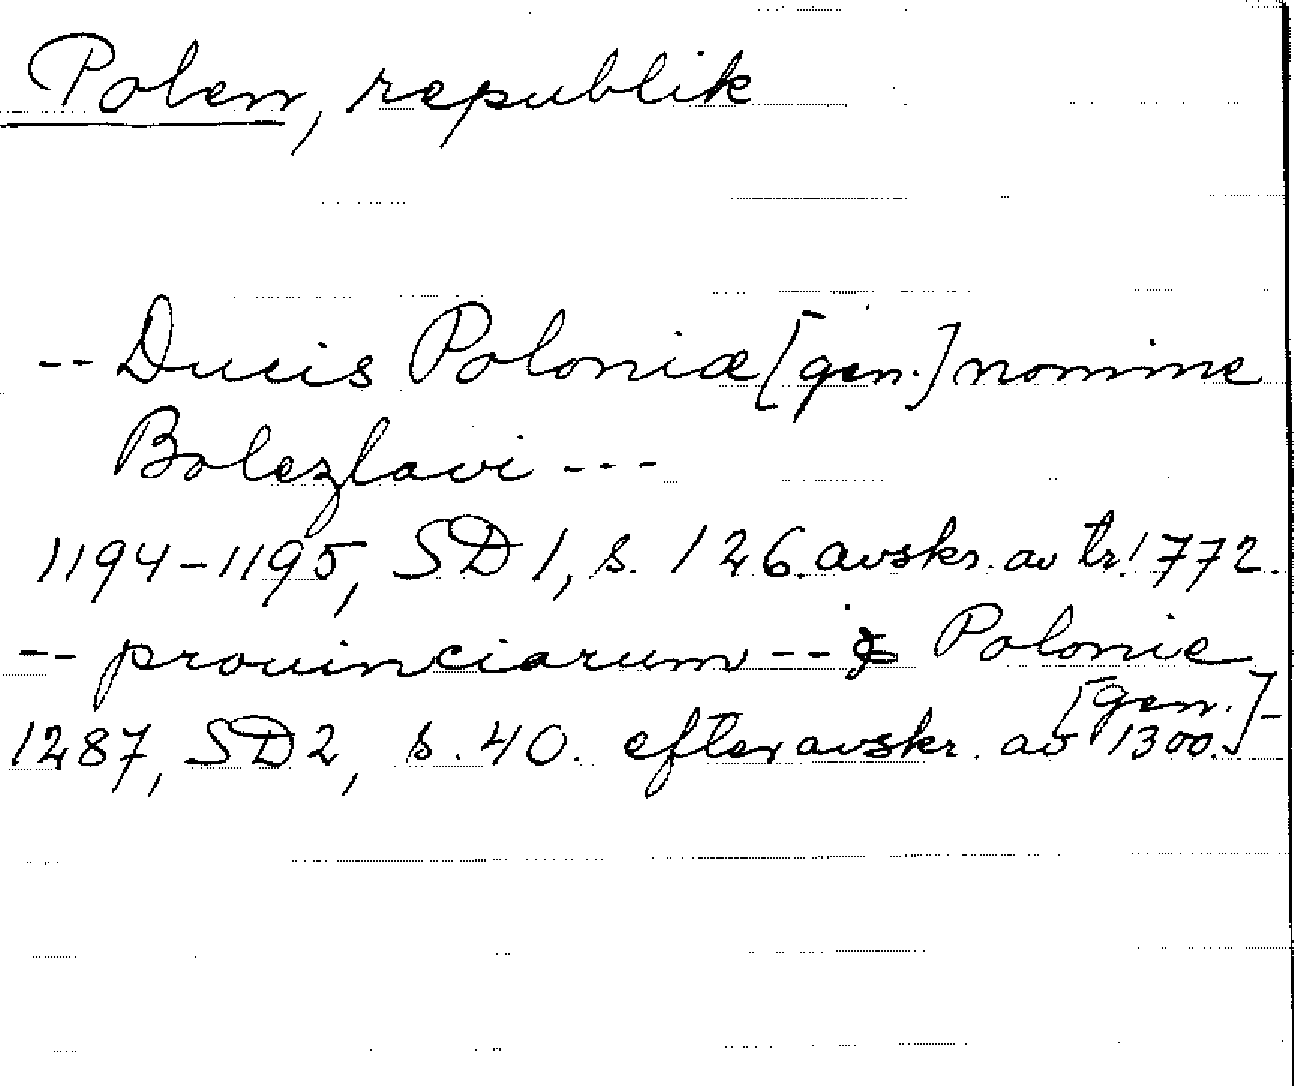 Polen, republik
-- Ducis Poloniæ [gen.] nomine
Bolezlavi ---
1194-1195, SD 1, s. 126 avskr. av tr. 1772.
-- prouinciarum -- & Polonie
[gen.] -
1287, SD 2, s. 40. efter avskr. av 1300.